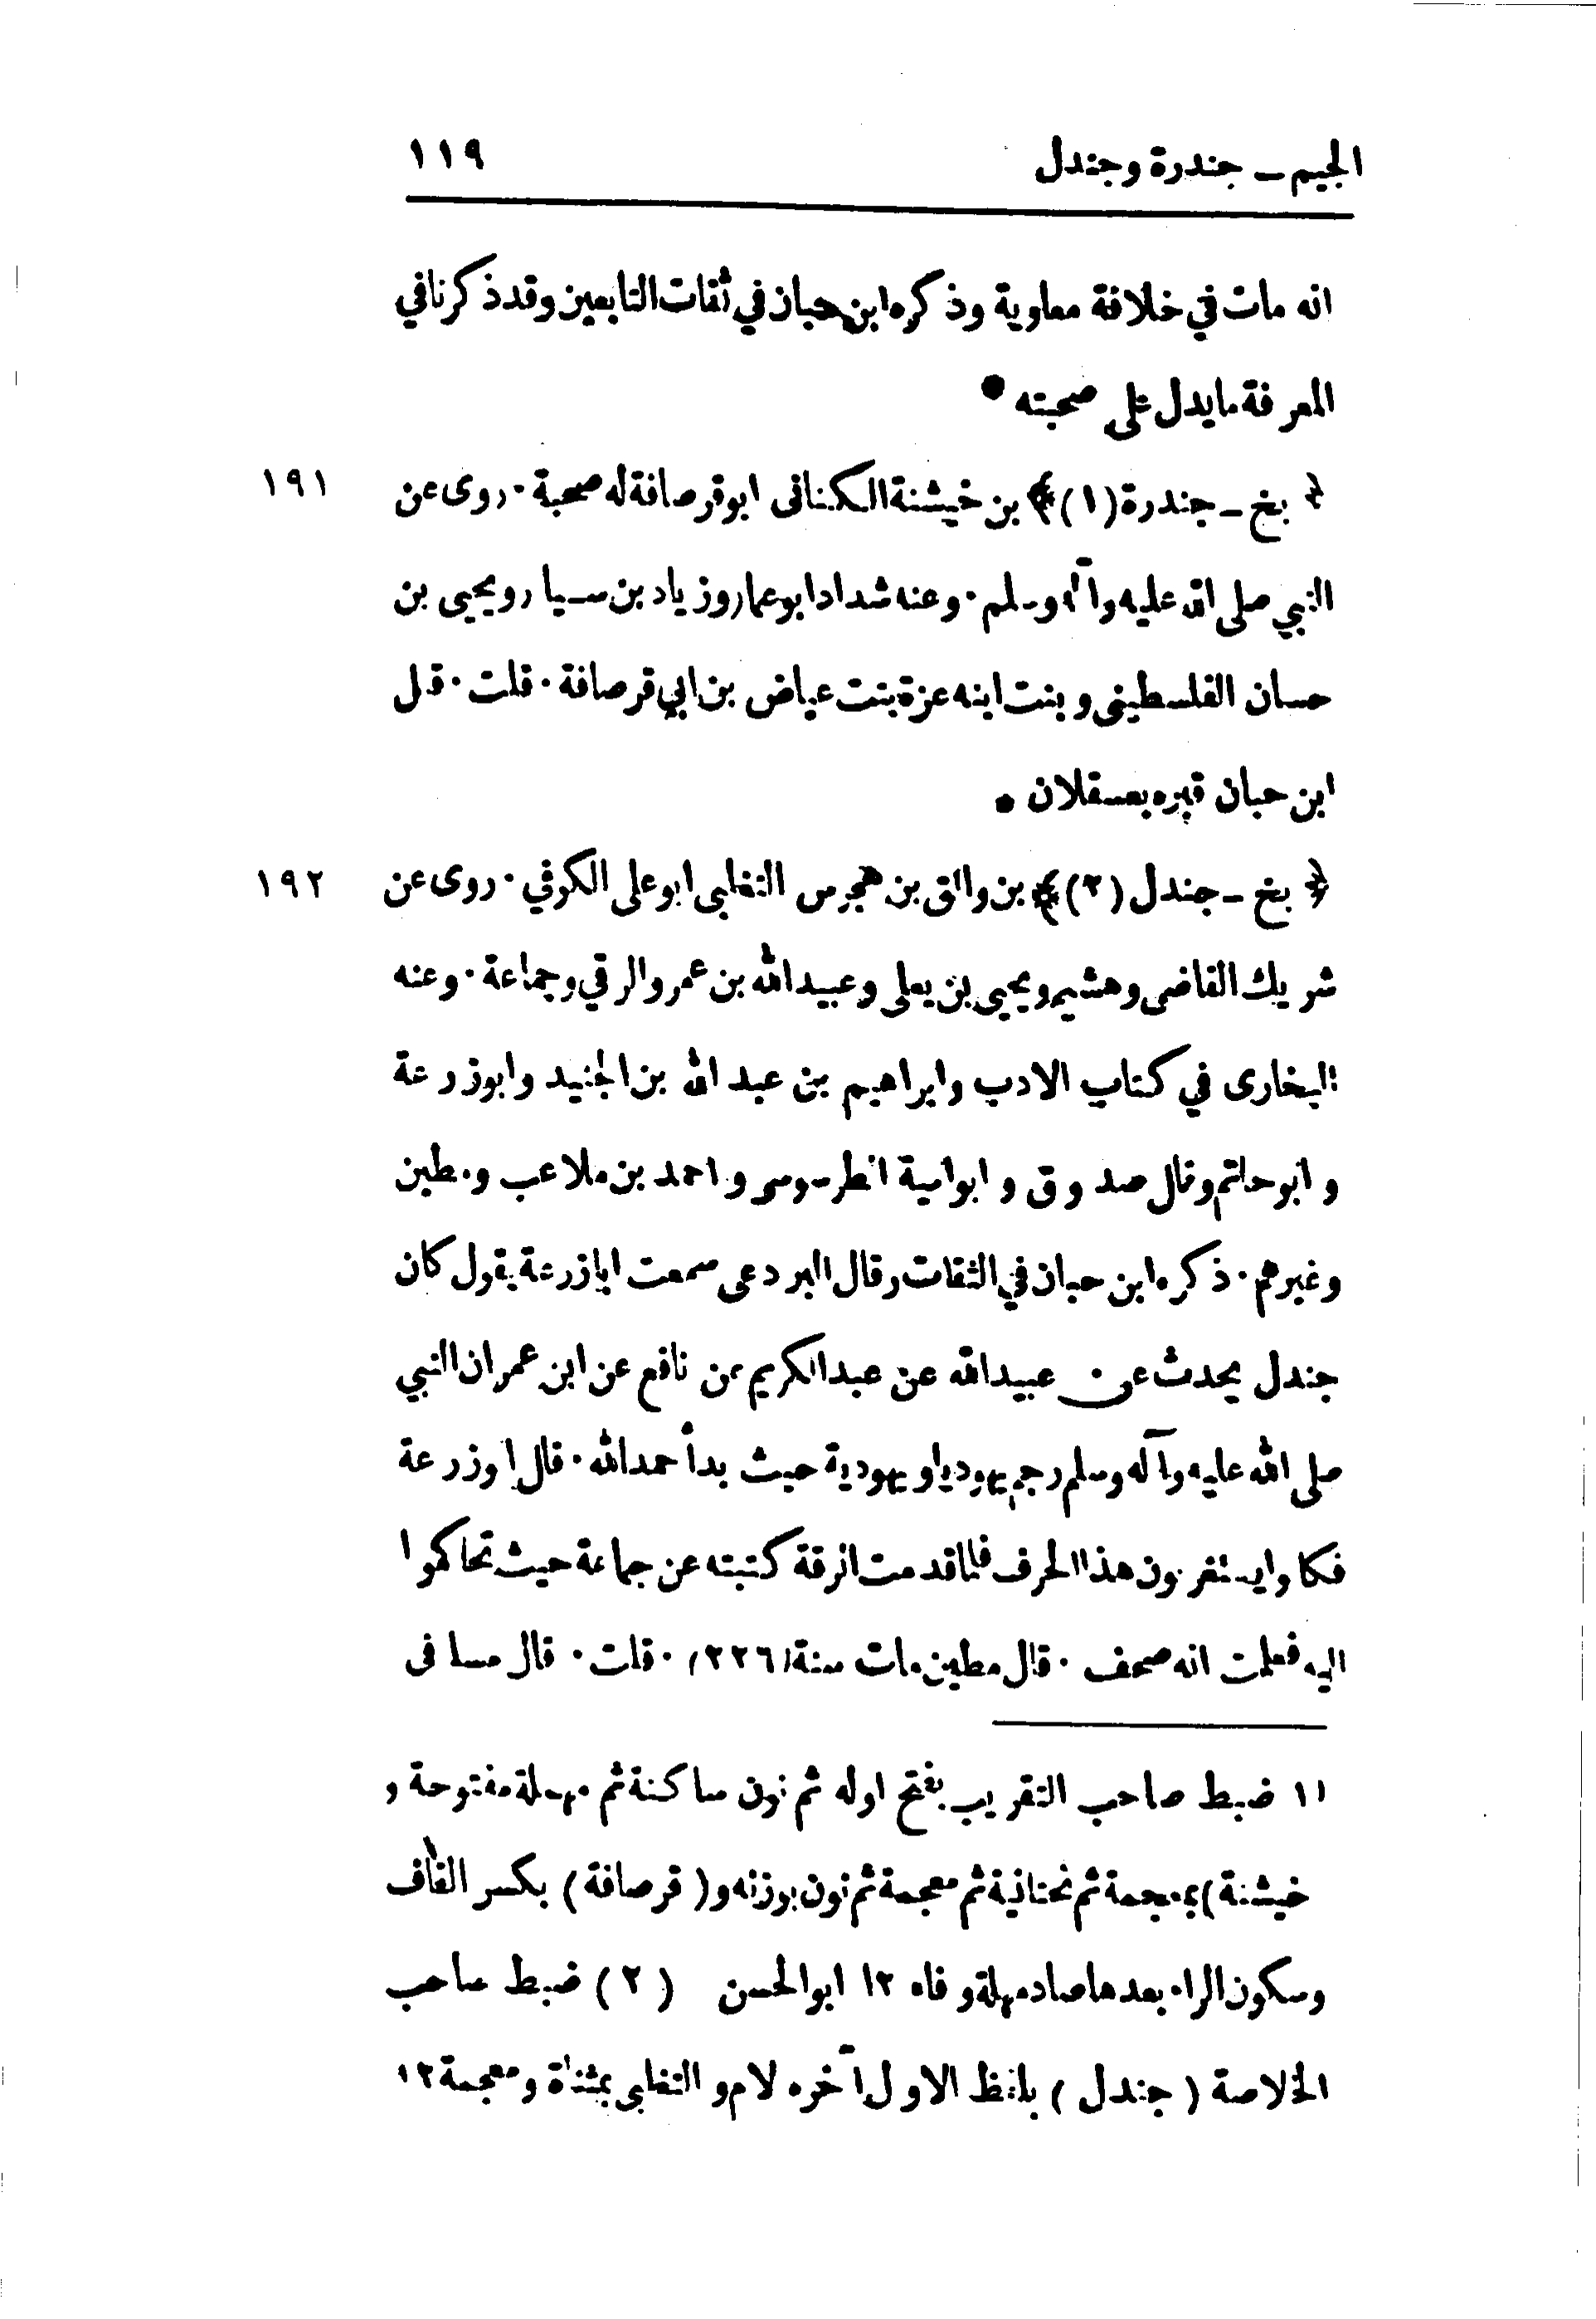 الجيم ـ جندرة وجندل ١١٩
انه مات في خلافة معاوية وذكره ابن حبان في ثقات التابعين وقد ذكرنا في
المعرفة ما يدل على صحبته •
﴿ بخ ـ جندرة (١) ﴾ بن خيشنة الكنانى ابو قرصافة له صحبة · روى عن ١٩١
النبي صلى الله عليه وآله وسلم · وعنه شداد ابو عمار وزياد بن سيار ويحيى بن
حسان الفلسطينى وبنت ابنه عزة بنت عياض بن ابي قرصافة · قلت · قال
ابن حبان قبره بعسقلان •
﴿ بخ ـ جندل (٢) ﴾ بن والق بن هجرس التغلبى ابو على الكوفي · روى عن ١٩٢
شريك القاضى وهشيم ويحيى بن يعلى وعبيد الله بن عمرو الرقي وجماعة · وعنه
البخارى في كتاب الادب وابراهيم بن عبد الله بن الجنيد وابو زرعة
وابو حاتم وقال صدوق وابو امية الطرسوسى واحمد بن ملاعب ومطين
وغيرهم · ذكره ابن حبان في الثقات وقال البردعى سمعت ابا زرعة يقول كان
جندل يحدث عن عبيد الله عن عبد الكريم عن نافع عن ابن عمر ان النبي
صلى الله عليه وآله وسلم رجم يهوديا ويهودية حيث بدأ حمد الله · قال ابو زرعة
فكانوا يستغربون هذا الحرف فلما قدمت الرقة كتبته عن جماعة حيث تحاكموا
اليه فعلمت انه صحف · قال مطين مات سنة (٢٢٦) · قلت · قال مسلم فى
(١) ضبط صاحب التقريب بفتح اوله ثم نون ساكنة ثم مهملة مفتوحة و
خيشنة) بمعجمة ثم تحتانية ثم معجمة ثم نون بوزنه و( قرصافة ) بكسر القاف
وسكون الراء بعدها صاد مهملة وفاء ١٢ ابو الحسن (٢) ضبط صاحب
الخلاصة ( جندل ) بلفظ الاول آخره لام و التغلبى بمثناة ومعجمة ١٢